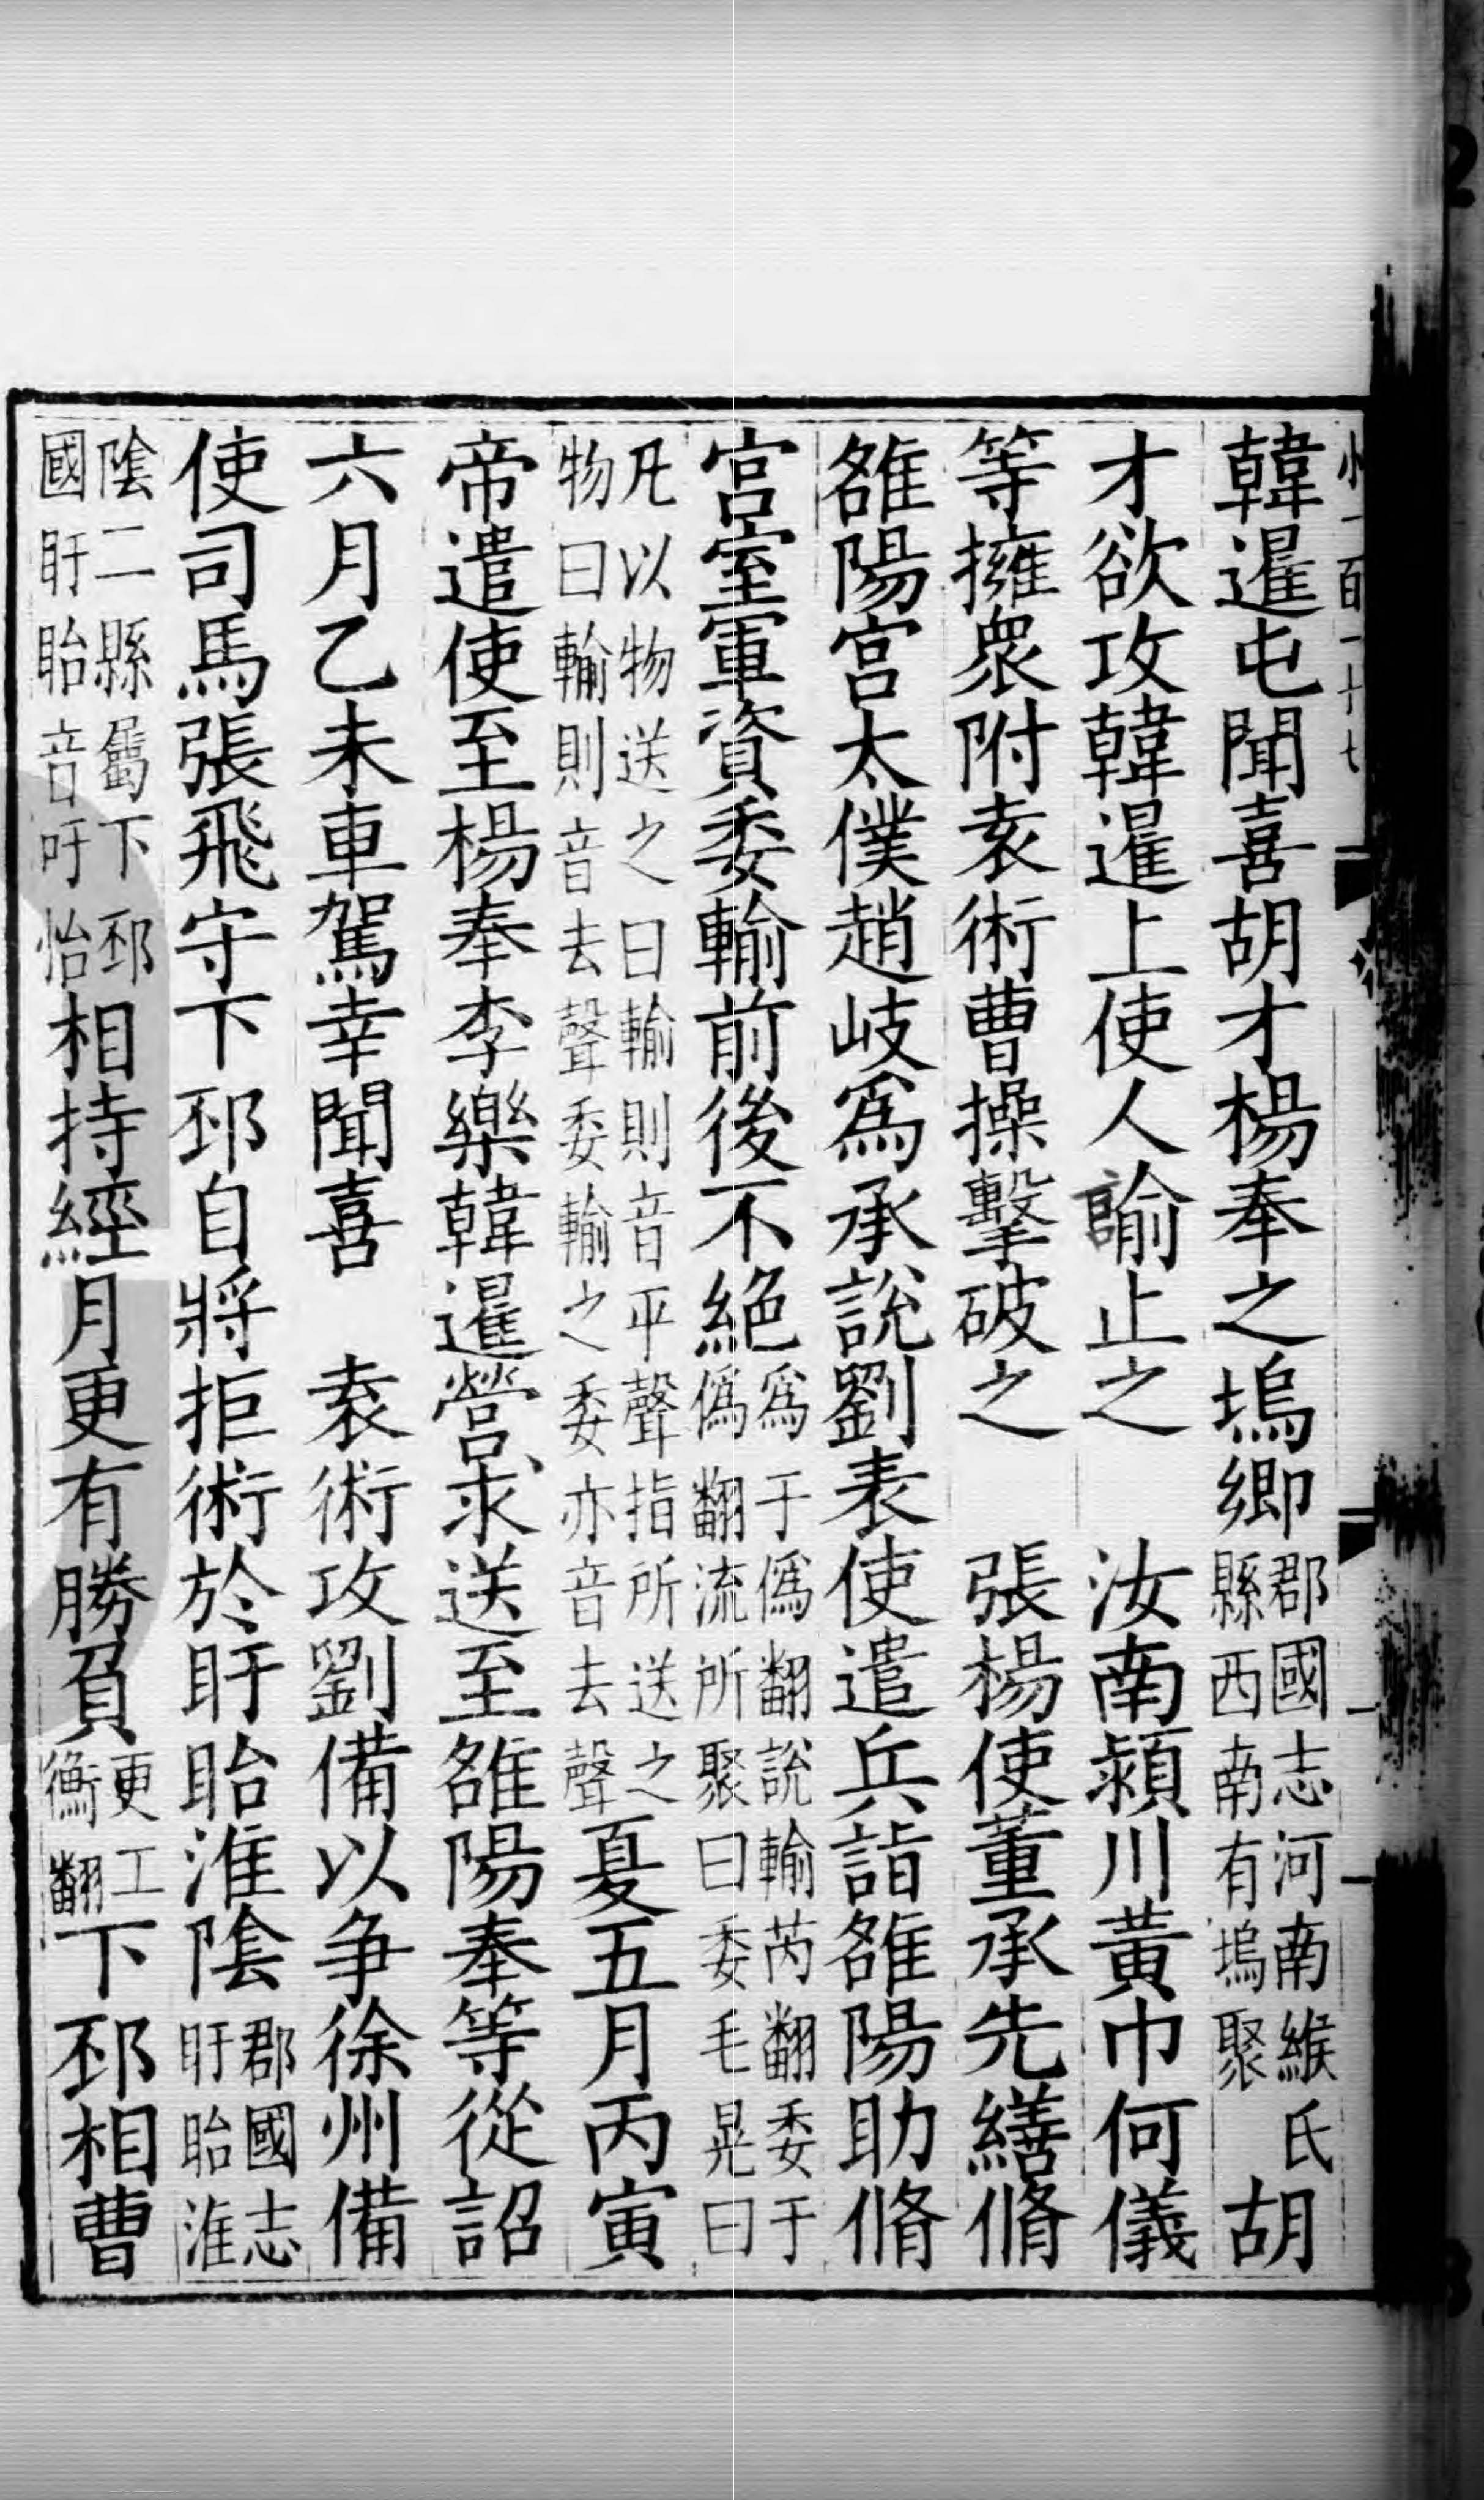 韓暹屯聞喜胡才楊奉之塢鄉郡國志河南緱氏縣西南有塢聚胡
才欲攻韓暹上使人諭止之　汝南潁川黃巾何儀
等擁衆附袁術曹操擊破之　張楊使董承先繕脩
雒陽宮太僕趙岐爲承說劉表使遣兵詣雒陽助脩
宮室軍資委輸前後不絕爲于僞翻說輸芮翻委于僞翻流所聚曰委毛晃曰
凡以物送之曰輸則音平聲指所送之物曰輸則音去聲委輸之委亦音去聲夏五月丙寅
帝遣使至楊奉李樂韓暹營求送至雒陽奉等從詔
六月乙未車駕幸聞喜　袁術攻劉備以爭徐州備
使司馬張飛守下邳自將拒術於盱眙淮陰郡國志盱眙淮
陰二縣屬下邳國盱眙音吁怡相持經月更有勝負更工衡翻下邳相曹